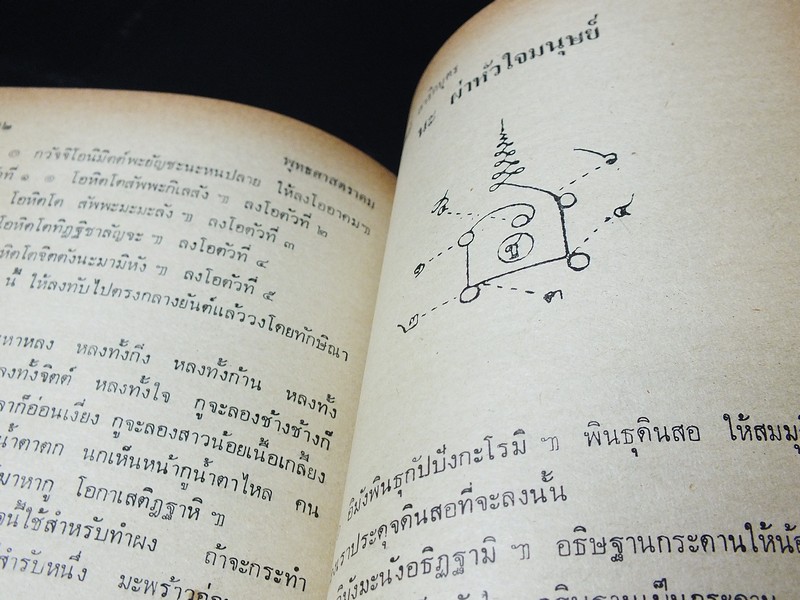 ๓ กวัจจิโอนิมิตต์พะอัญชะนะหนปลาย ให้ลงโออาคม ฯ
พุทธศาสตราคม
ที่ ๑ ๑ โอหิตโตสัพพะกิเลสัง ฯ ลงโอตัวที่ ๒
โอหิตโต สัพพะมะมะลัง ฯ ลงโอตัวที่ ๓
โอหิตโตทิฏฐิชาลัญจะ ฯ ลงโอตัวที่ ๔
หิตโตจิตตังนะมามิหัง ฯ ลงโอตัวที่ ๕
นี้ ให้ลงทับไปตรงกลางยันต์แล้ววงโดยทักษิณา
หาหลง หลงทั้งกิ่ง หลงทั้งก้าน หลงทั้ง
ลงทั้งจิตต์ หลงทั้งใจ กูจะลองช้างช้างก็
ลาก็อ่อนเงี่ยง กูจะลองสาวน้อยเนื้อเกลี้ยง
น้ำตาตก นกเห็นหน้ากูน้ำตาไหล คน
มาหากู โอกาเสติฏฐาหิ ฯ
นี้ใช้สำหรับทำผง ถ้าจะกระทำ
สำรับหนึ่ง มะพร้าว
นะ ผ่าหัวใจมนุษย์
๑
๒
๓
๔
อิมังพินธุกัปปังกะโรมิ ฯ พินธุดินสอ ให้สมมุ
เราประดุจดินสอที่จะลงนั้น
อธิฏฐามิ ฯ อธิษฐานกระดานให้น้อ